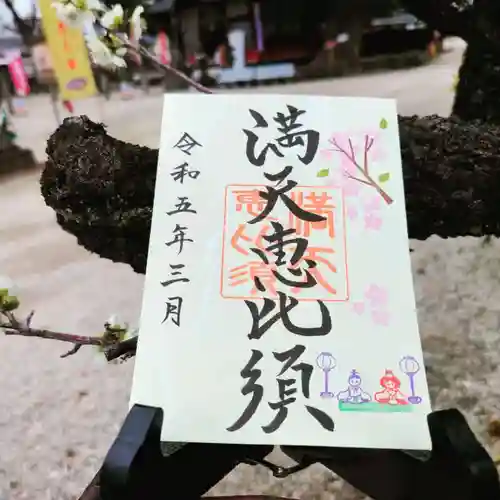 満天恵比須
満天
恵比須
令和五年三月